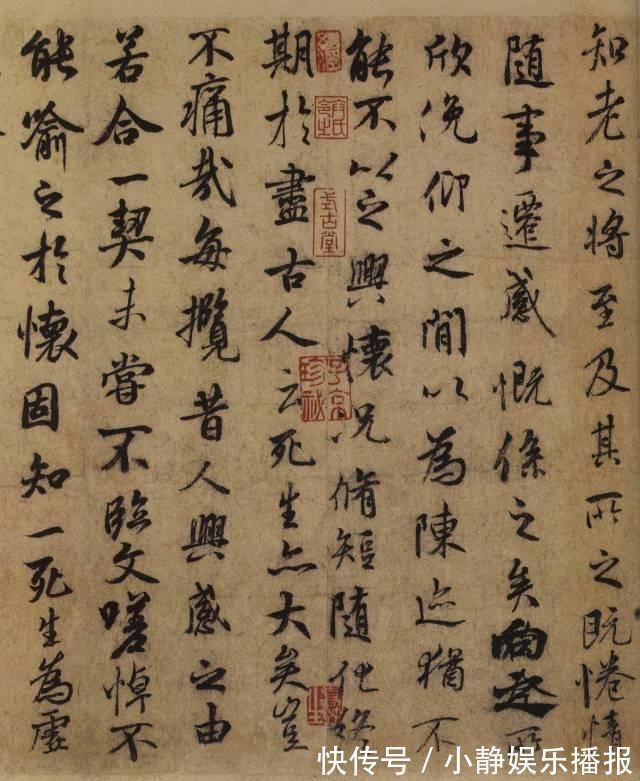 知老之将至及其所之既惓情
随事遷感慨係之矣向之所
欣俛仰之閒以為陳迹猶不
能不以之興懷况脩短随化終
期於盡古人云死生亦大矣豈
不痛哉每攬昔人興感之由
若合一契未嘗不臨文嗟悼不
能喻之於懷固知一死生為虛
式古堂
子京珍秘
快传号/小静娱乐播报